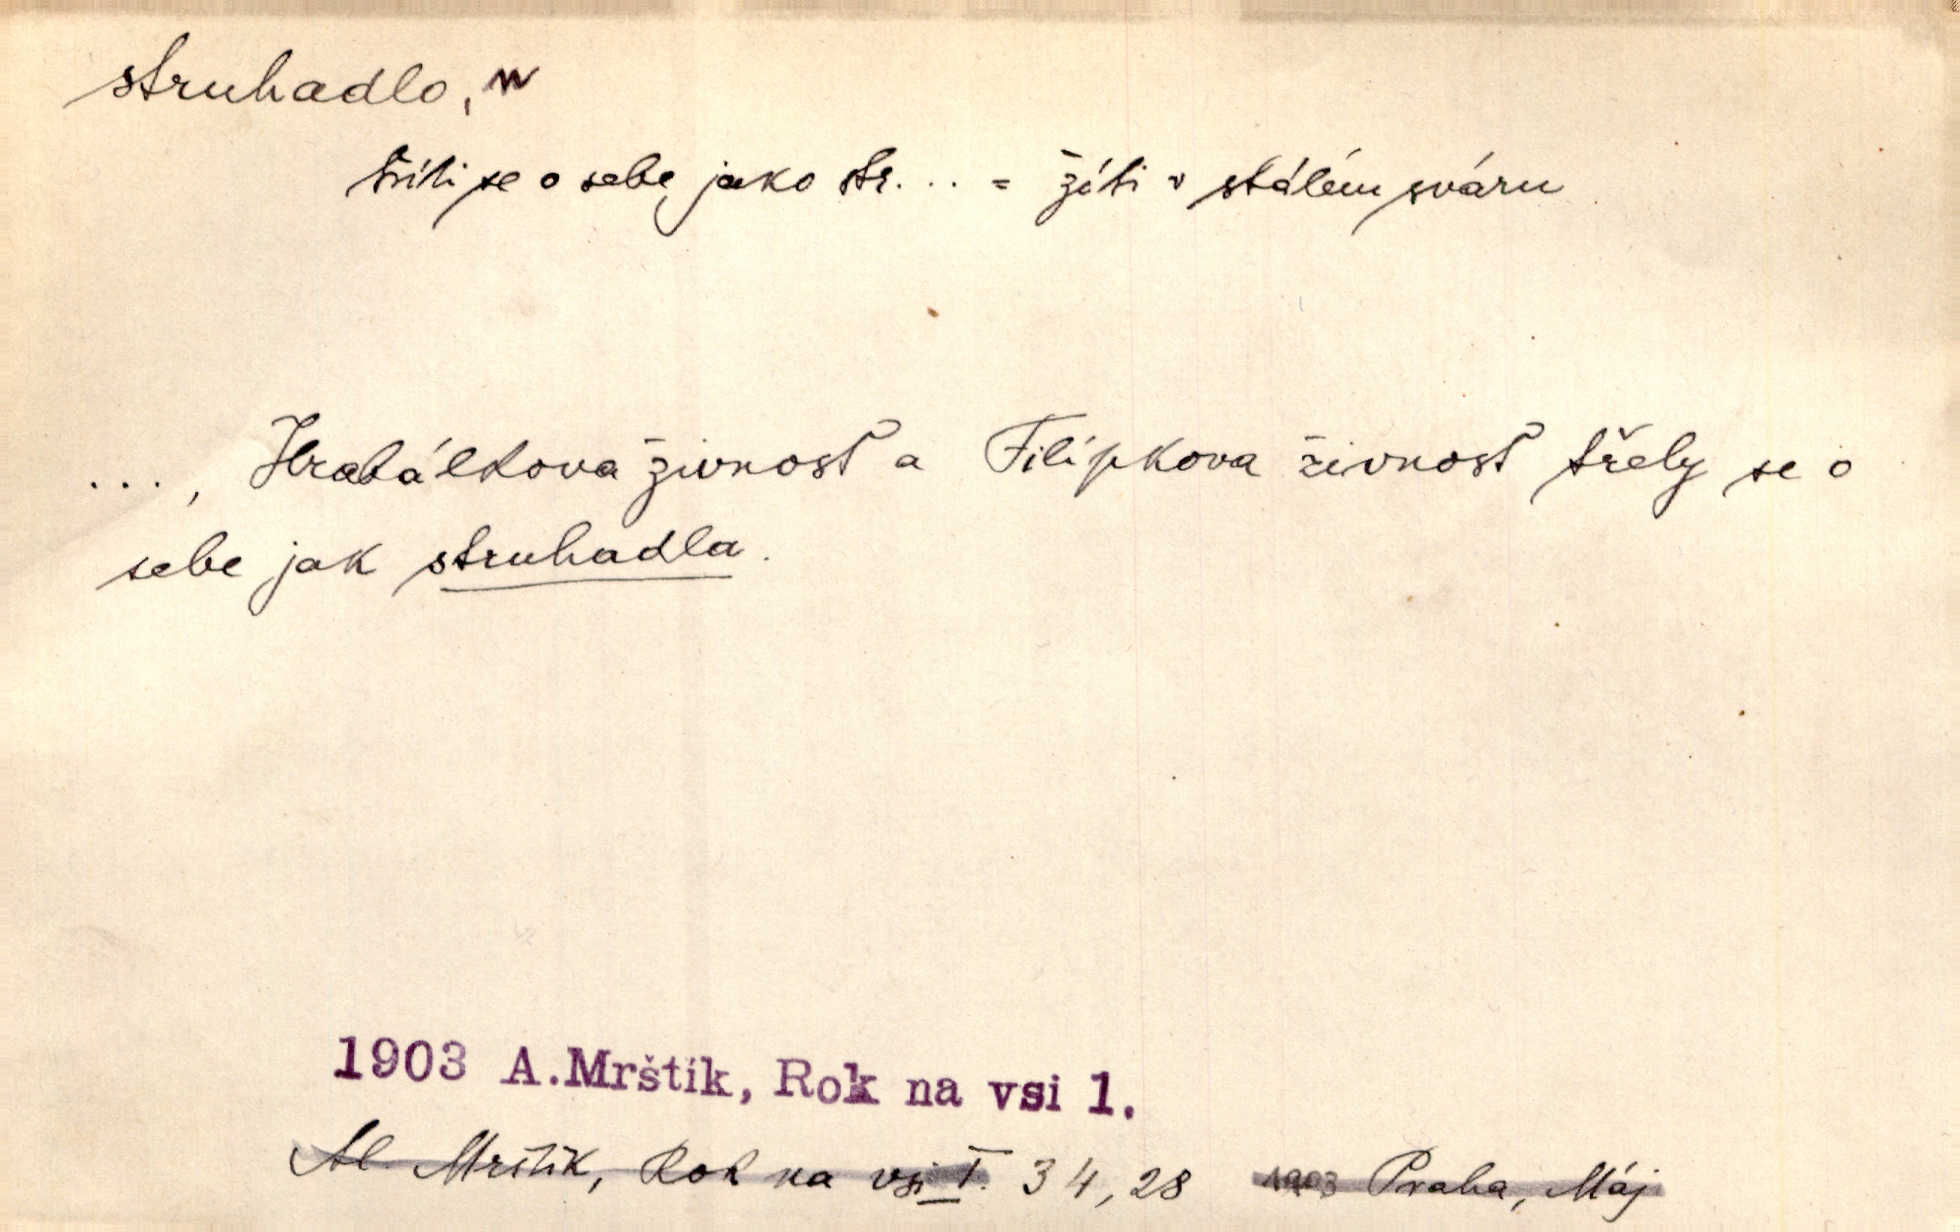 struhadlo, n
tříti se o sebe jako str... = žíti v stálém sváru
..., Hrabálkova živnost a Filípkova živnost třely se o
sebe jak struhadla.
1903 A.Mrštík, Rok na vsi 1.
Al. Mrštík, Rok na vsi I. 34, 28 1903 Praha, Máj